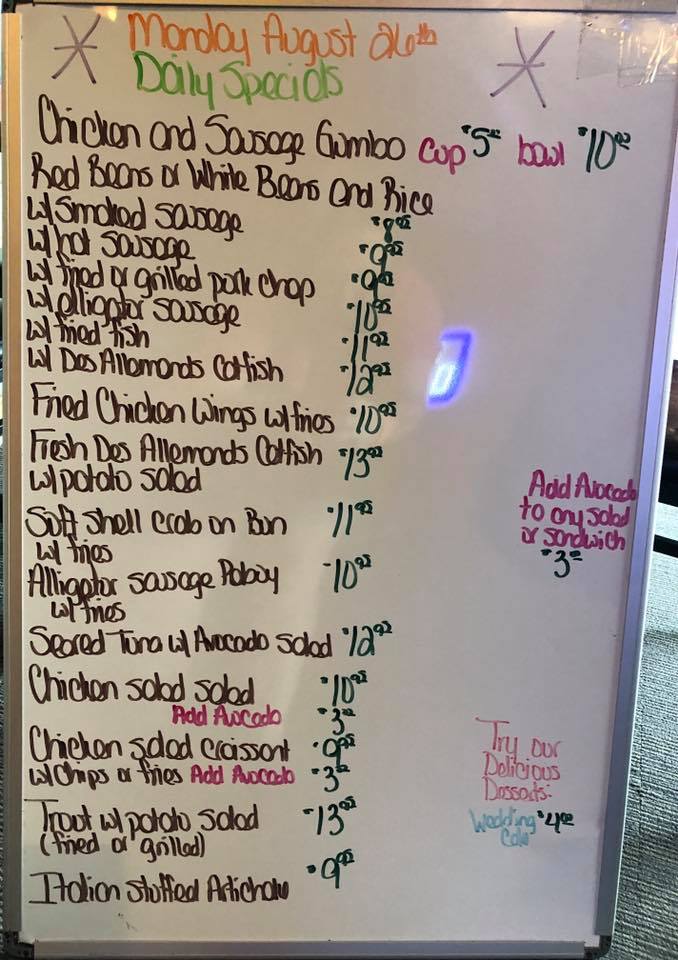 Monday August 26th
Daily Specials
Chicken and Sausage Gumbo cup $5 bowl $10
Red Beans or White Beans and Rice
w/ Smoked sausage $8
w/ hot sausage $9
w/ fried or grilled pork chop $9
w/ alligator sausage $10
w/ fried fish $11
w/ Des Allemands Catfish $12
Fried Chicken Wings w/ fries $10
Fresh Des Allemands Catfish $13
w/ potato salad
Soft shell crab on Bun $11
w/ fries
Alligator sausage Poboy $10
w/ fries
Seared Tuna w/ Avocado salad $12
Chicken salad salad $10
Add Avocado $3
Chicken salad croissant $9
w/ Chips or fries Add Avocado $3
Trout w/ potato salad $13
(fried or grilled)
Italian stuffed Artichoke $9
Add Avocado
to any salad
or sandwich
$3
Try our
Delicious
Desserts:
Wedding $4
Cake